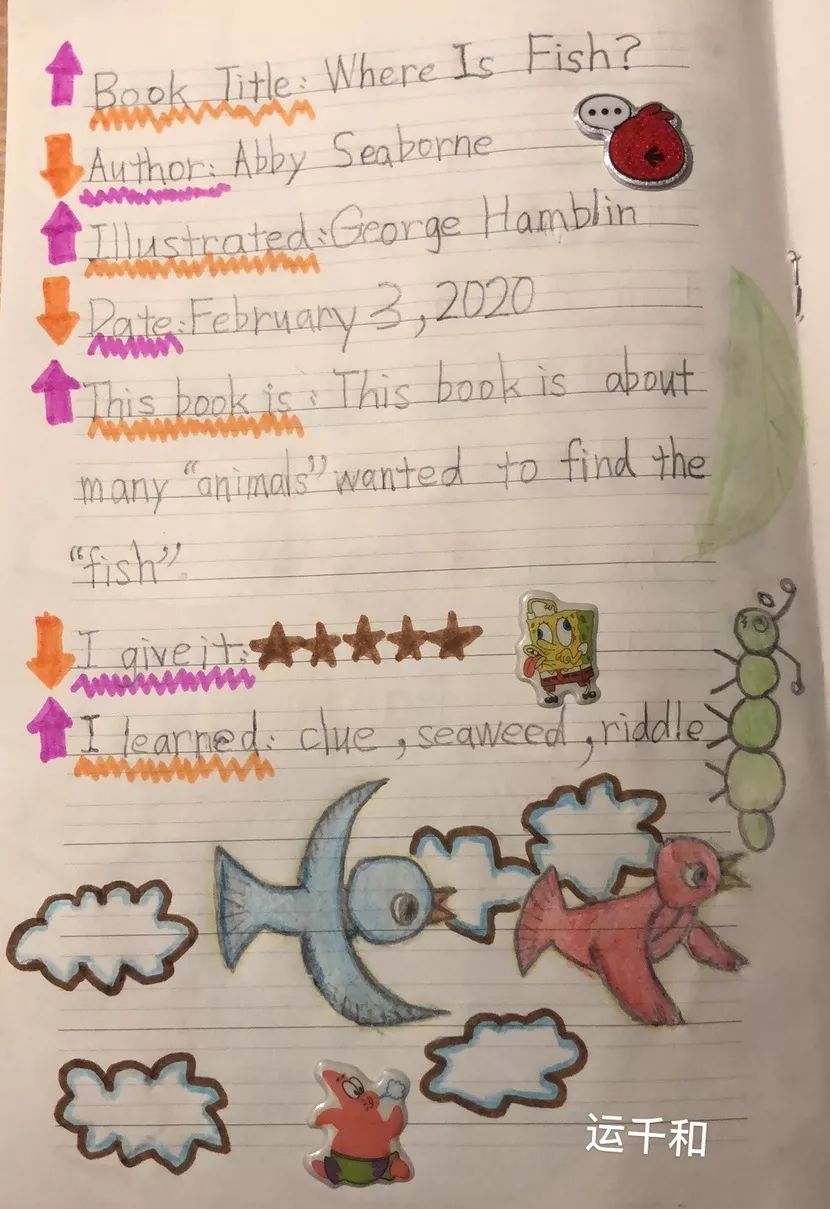 Book Title: Where Is Fish?
Author: Abby Seaborne
Illustrated: George Hamblin
Date: February 3, 2020
This book is: This book is about
many "animals" wanted to find the
"fish".
I give it: ★★★★★
I learned: clue, seaweed, riddle
运千和